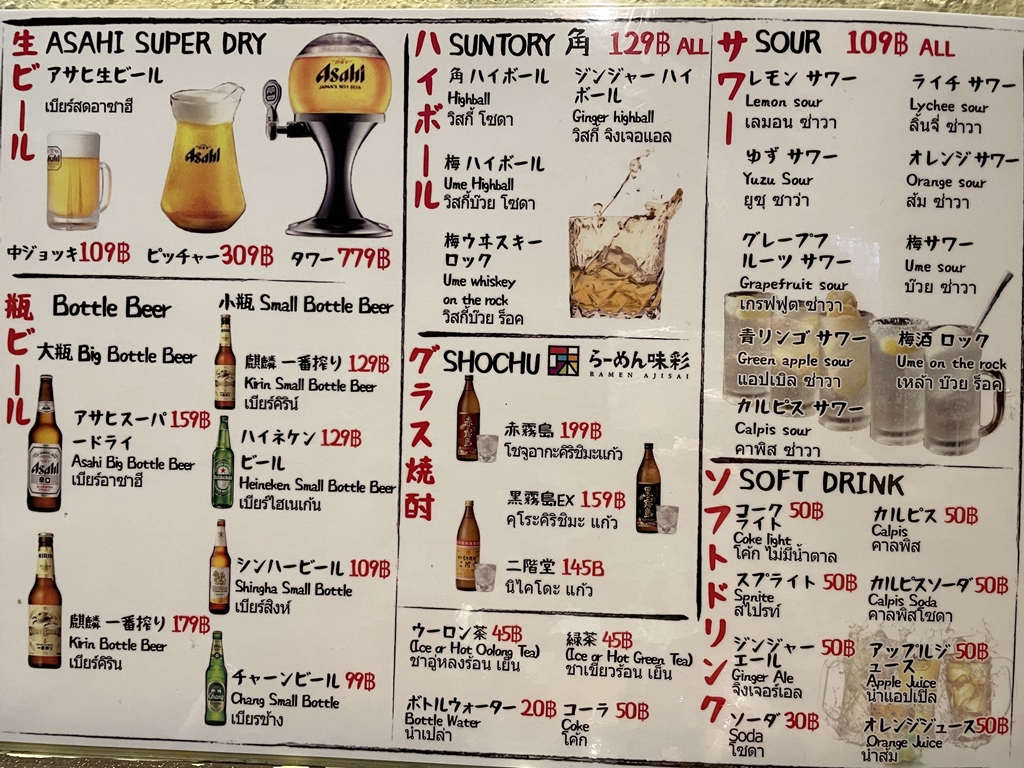 生ビール
ASAHI SUPER DRY
アサヒ生ビール
เบียร์สดอาซาฮี
Asahi
Asahi
Asahi
JAPAN'S NO.1 BEER
中ジョッキ109฿
ピッチャー309฿
タワー779฿
瓶ビール
Bottle Beer
大瓶 Big Bottle Beer
アサヒスーパ 159฿
ードライ
Asahi Big Bottle Beer
เบียร์อาซาฮี
麒麟 一番搾り 179฿
Kirin Bottle Beer
เบียร์คิริน
小瓶 Small Bottle Beer
麒麟 一番搾り 129฿
Kirin Small Bottle Beer
เบียร์คิริน์
ハイネケン 129฿
ビール
Heineken Small Bottle Beer
เบียร์ไฮเนเก้น
シンハービール 109฿
Shingha Small Bottle
เบียร์สิงห์
チャーンビール 99฿
Chang Small Bottle
เบียร์ช้าง
ハイボール
SUNTORY 角 129฿ ALL
角 ハイボール
Highball
วิสกี้ โซดา
ジンジャー ハイ
ボール
Ginger highball
วิสกี้ จิงเจอแอล
梅 ハイボール
Ume Highball
วิสกี้บ๊วย โซดา
梅ウヰスキー
ロック
Ume whiskey
on the rock
วิสกี้บ๊วย ร็อค
グラス焼酎
SHOCHU らーめん味彩
RAMEN AJISAI
赤霧島 199฿
โชจูอากะคิริชิมะแก้ว
黒霧島EX 159฿
คุโระคิริชิมะ แก้ว
二階堂 145B
นิไคโดะ แก้ว
ウーロン茶 45฿
(Ice or Hot Oolong Tea)
ชาอู่หลงร้อน เย็น
緑茶 45฿
(Ice or Hot Green Tea)
ชาเขียวร้อน เย็น
ボトルウォーター 20฿
Bottle Water
น้ำเปล่า
コーラ 50฿
Coke
โค้ก
サワー
SOUR 109฿ ALL
レモン サワー
Lemon sour
เลมอน ซ่าวา
ライチ サワー
Lychee sour
ลิ้นจี่ ซ่าวา
ゆず サワー
Yuzu Sour
ยูซุ ซาว่า
オレンジ サワー
Orange sour
ส้ม ซ่าวา
グレープフ
ルーツ サワー
Grapefruit sour
เกรฟฟูต ซ่าวา
梅サワー
Ume sour
บ๊วย ซ่าวา
青リンゴ サワー
Green apple sour
แอปเปิล ซ่าวา
梅酒 ロック
Ume on the rock
เหล้า บ๊วย ร็อค
カルピス サワー
Calpis sour
คาพิส ซ่าวา
ソフトドリンク
SOFT DRINK
コーク 50฿
ライト
Coke light
โค้ก ไม่มีน้ำตาล
カルピス 50฿
Calpis
คาลพิส
スプライト 50฿
Sprite
สไปรท์
カルピスソーダ 50฿
Calpis Soda
คาลพิสโซดา
ジンジャー 50฿
エール
Ginger Ale
จิงเจอร์เอล
アップルジ 50฿
ュース
Apple Juice
น้ำแอปเปิ้ล
ソーダ 30฿
Soda
โซดา
オレンジジュース 50฿
Orange Juice
น้ำส้ม